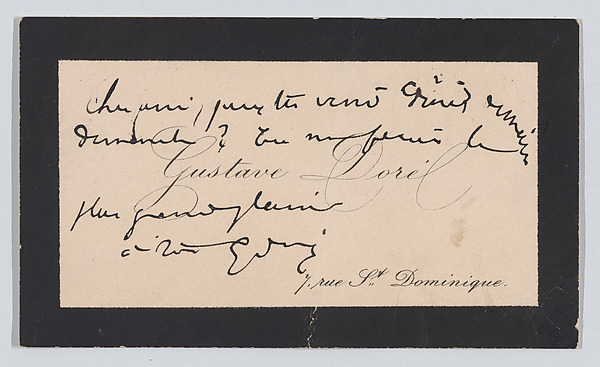 cher ami, peux tu venir dîner demain
dimanche? Tu me feras le
Gustave Doré
plus grand plaisir
à toi
7, rue St. Dominique.